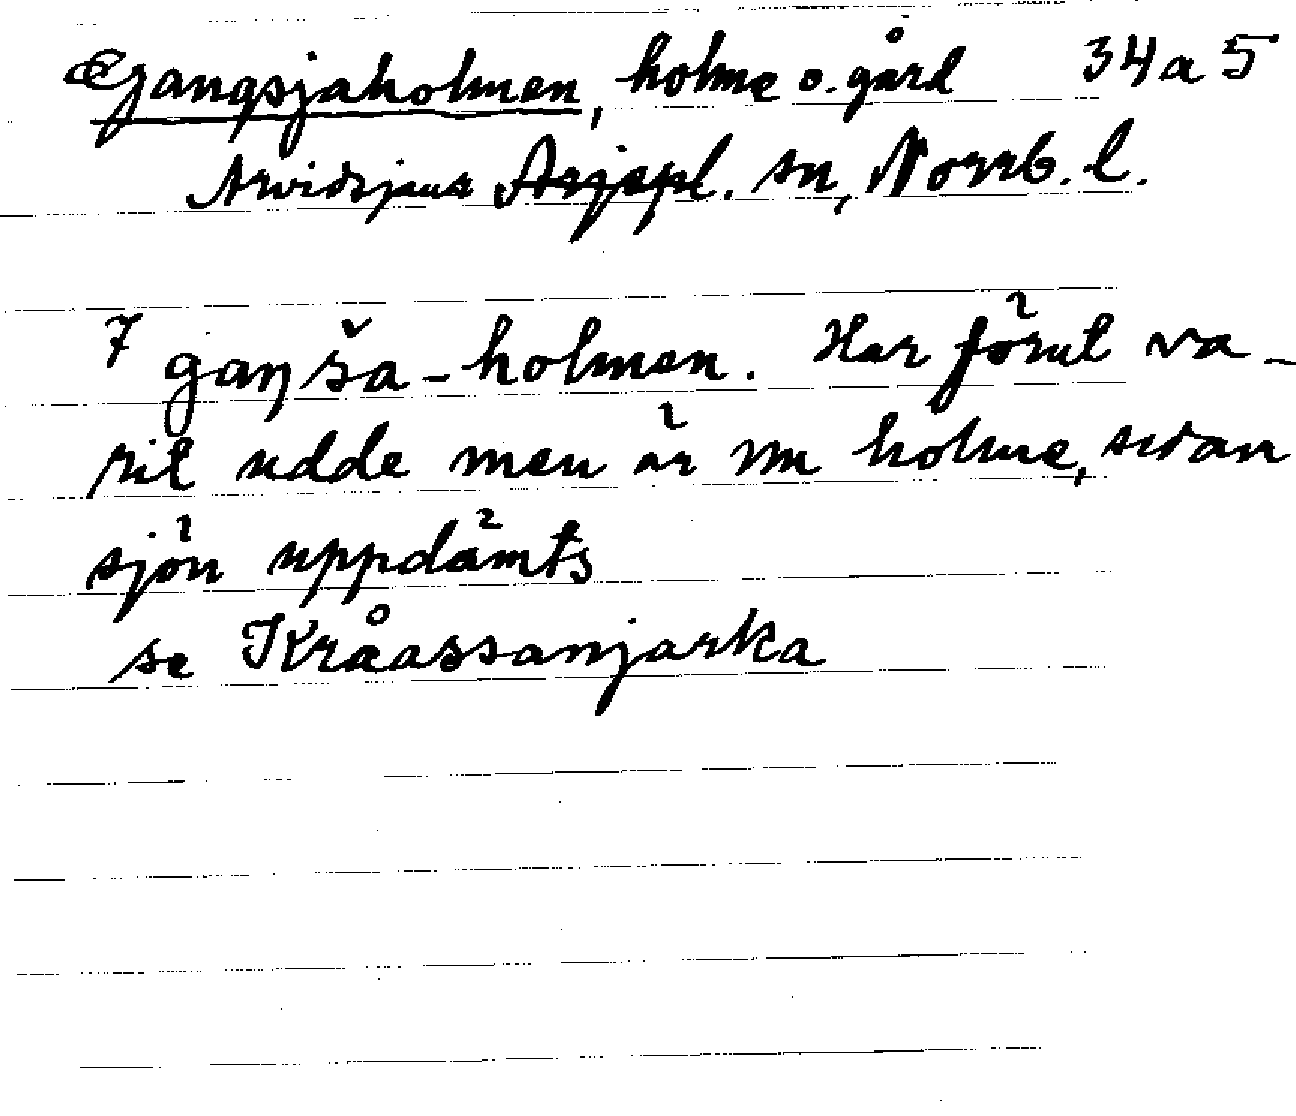 Gangsjaholmen, holme o. gård 34a5
Arvidsjaur Arjepl. sn, Norrb. l.
7 gaŋša-holmen. Har förut va-
rit udde men är nu holme, sedan
sjön uppdämts
se Kråassanjarka